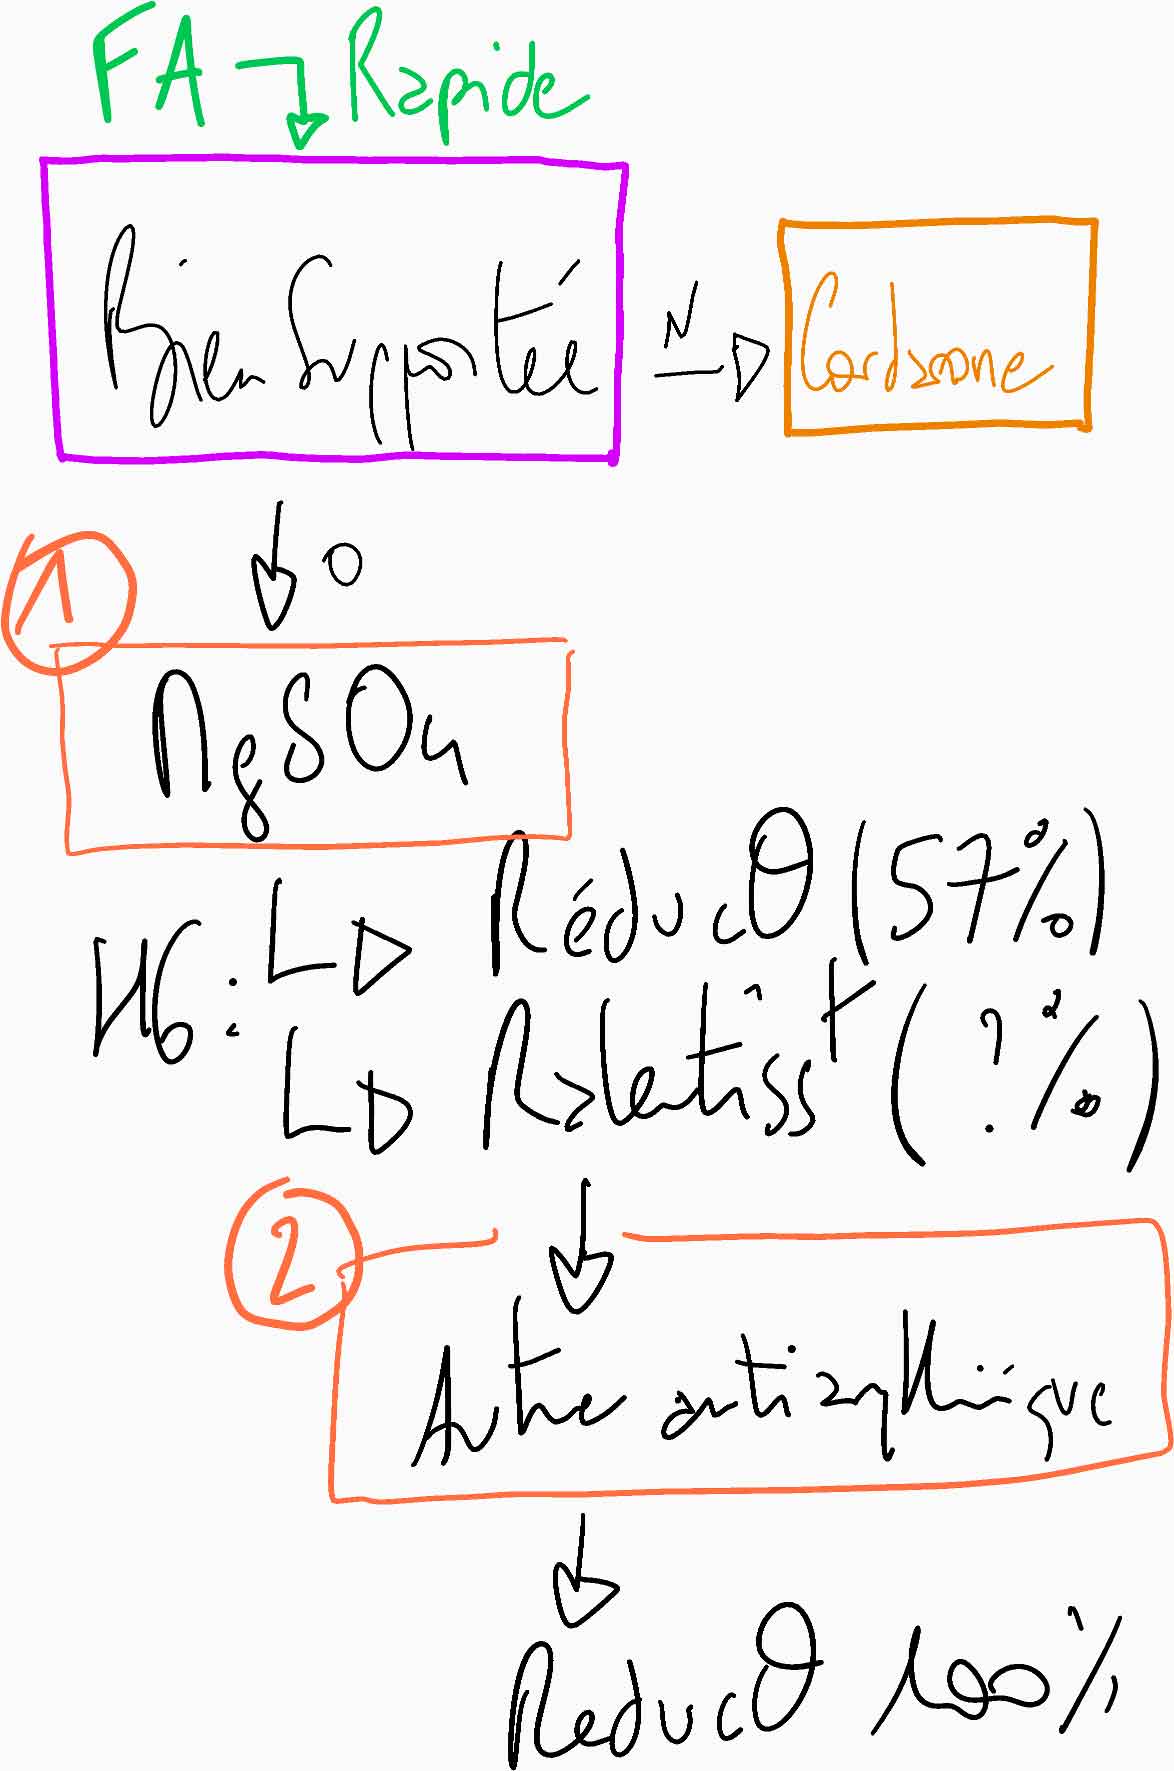 FA → Rapide
Bien Supportée
N
Cordarone
O
1
MgSO4
H6 : Réducθ (57%)
Ralentisst (?%)
2
Autre antiarythmique
Reducθ 100%